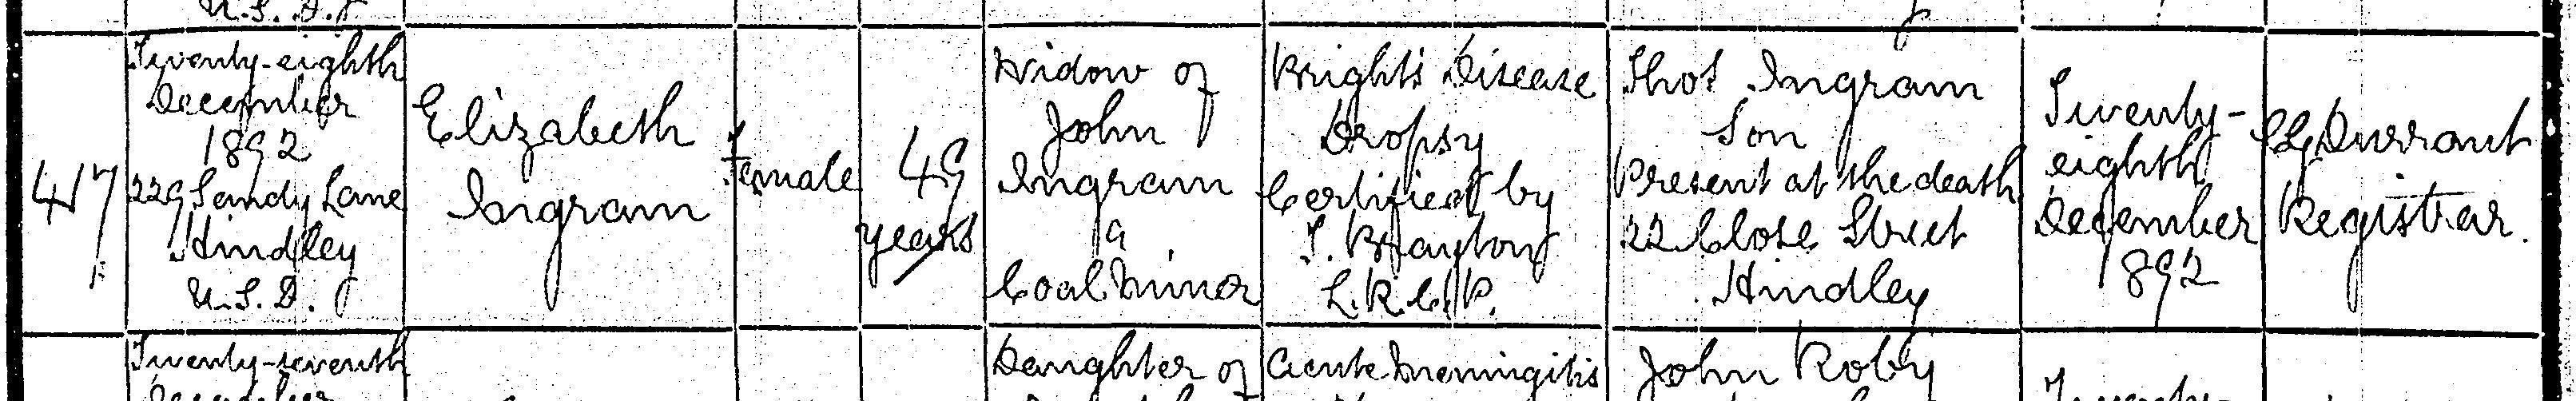 U.S.D.
417
Twenty-eighth
December
1892
229 Sandy Lane
Hindley
U.S.D.
Elizabeth
Ingram
Female
49
years
Widow of
John
Ingram
a
Coal Miner
Bright's Disease
Dropsy
Certified by
T. Brayton
L.R.C.P.
Thos Ingram
Son
Present at the death
22 Close Street
Hindley
Twenty-
eighth
December
1892
Durrant
Registrar.
Twenty-seventh
December
Daughter of
Acute Meningitis
John Roby
Twenty-